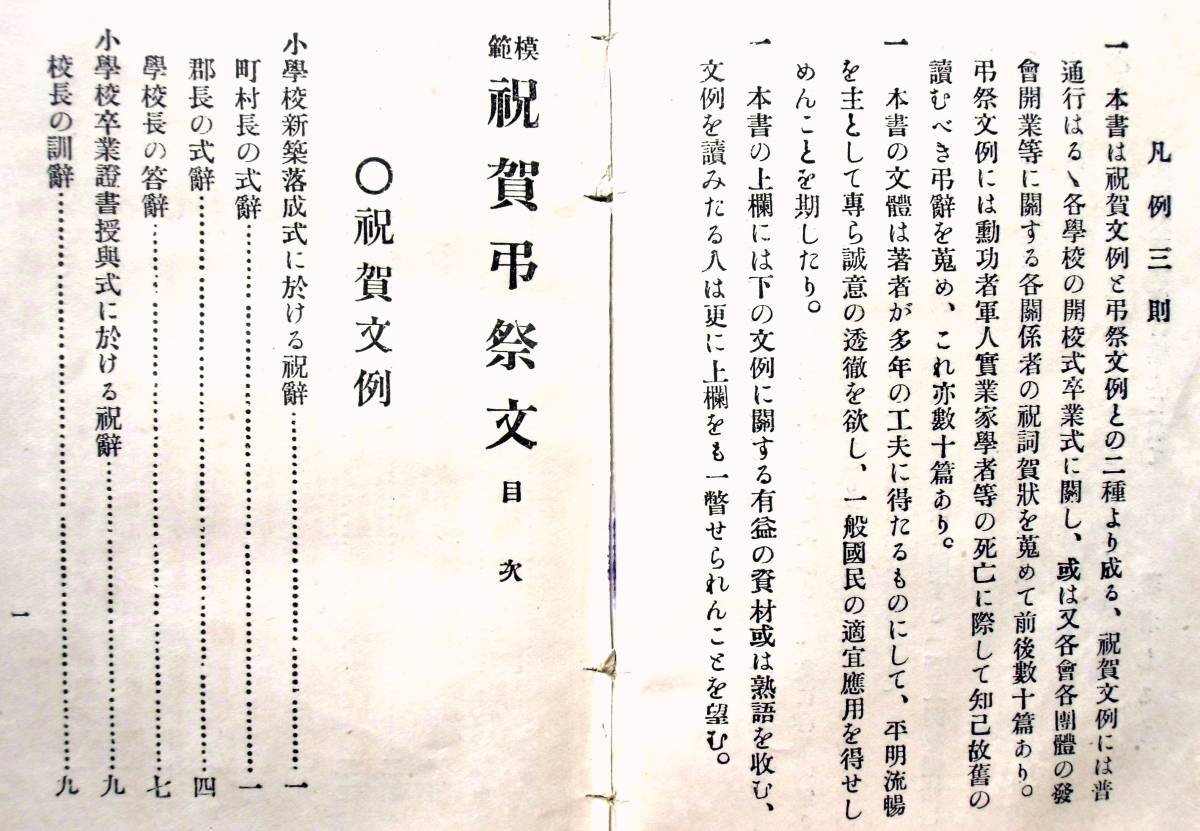 凡例三則
一 本書は祝賀文例と弔祭文例との二種より成る、祝賀文例には普
通行はるヽ各學校の開校式卒業式に關し、或は又各會各團體の發
會開業等に關する各關係者の祝詞賀狀を蒐めて前後數十篇あり。
弔祭文例には勳功者軍人實業家學者等の死亡に際して知己故舊の
讀むべき弔辭を蒐め、これ亦數十篇あり。
一 本書の文體は著者が多年の工夫に得たるものにして、平明流暢
を主として專ら誠意の透徹を欲し、一般國民の適宜應用を得せし
めんことを期したり。
一 本書の上欄には下の文例に關する有益の資材或は熟語を收む、
文例を讀みたる人は更に上欄をも一瞥せられんことを望む。
模範 祝賀弔祭文 目次
〇祝賀文例
小學校新築落成式に於ける祝辭……一
町村長の式辭……一
郡長の式辭……四
學校長の答辭……七
小學校卒業證書授與式に於ける祝辭……九
校長の訓辭……九
一